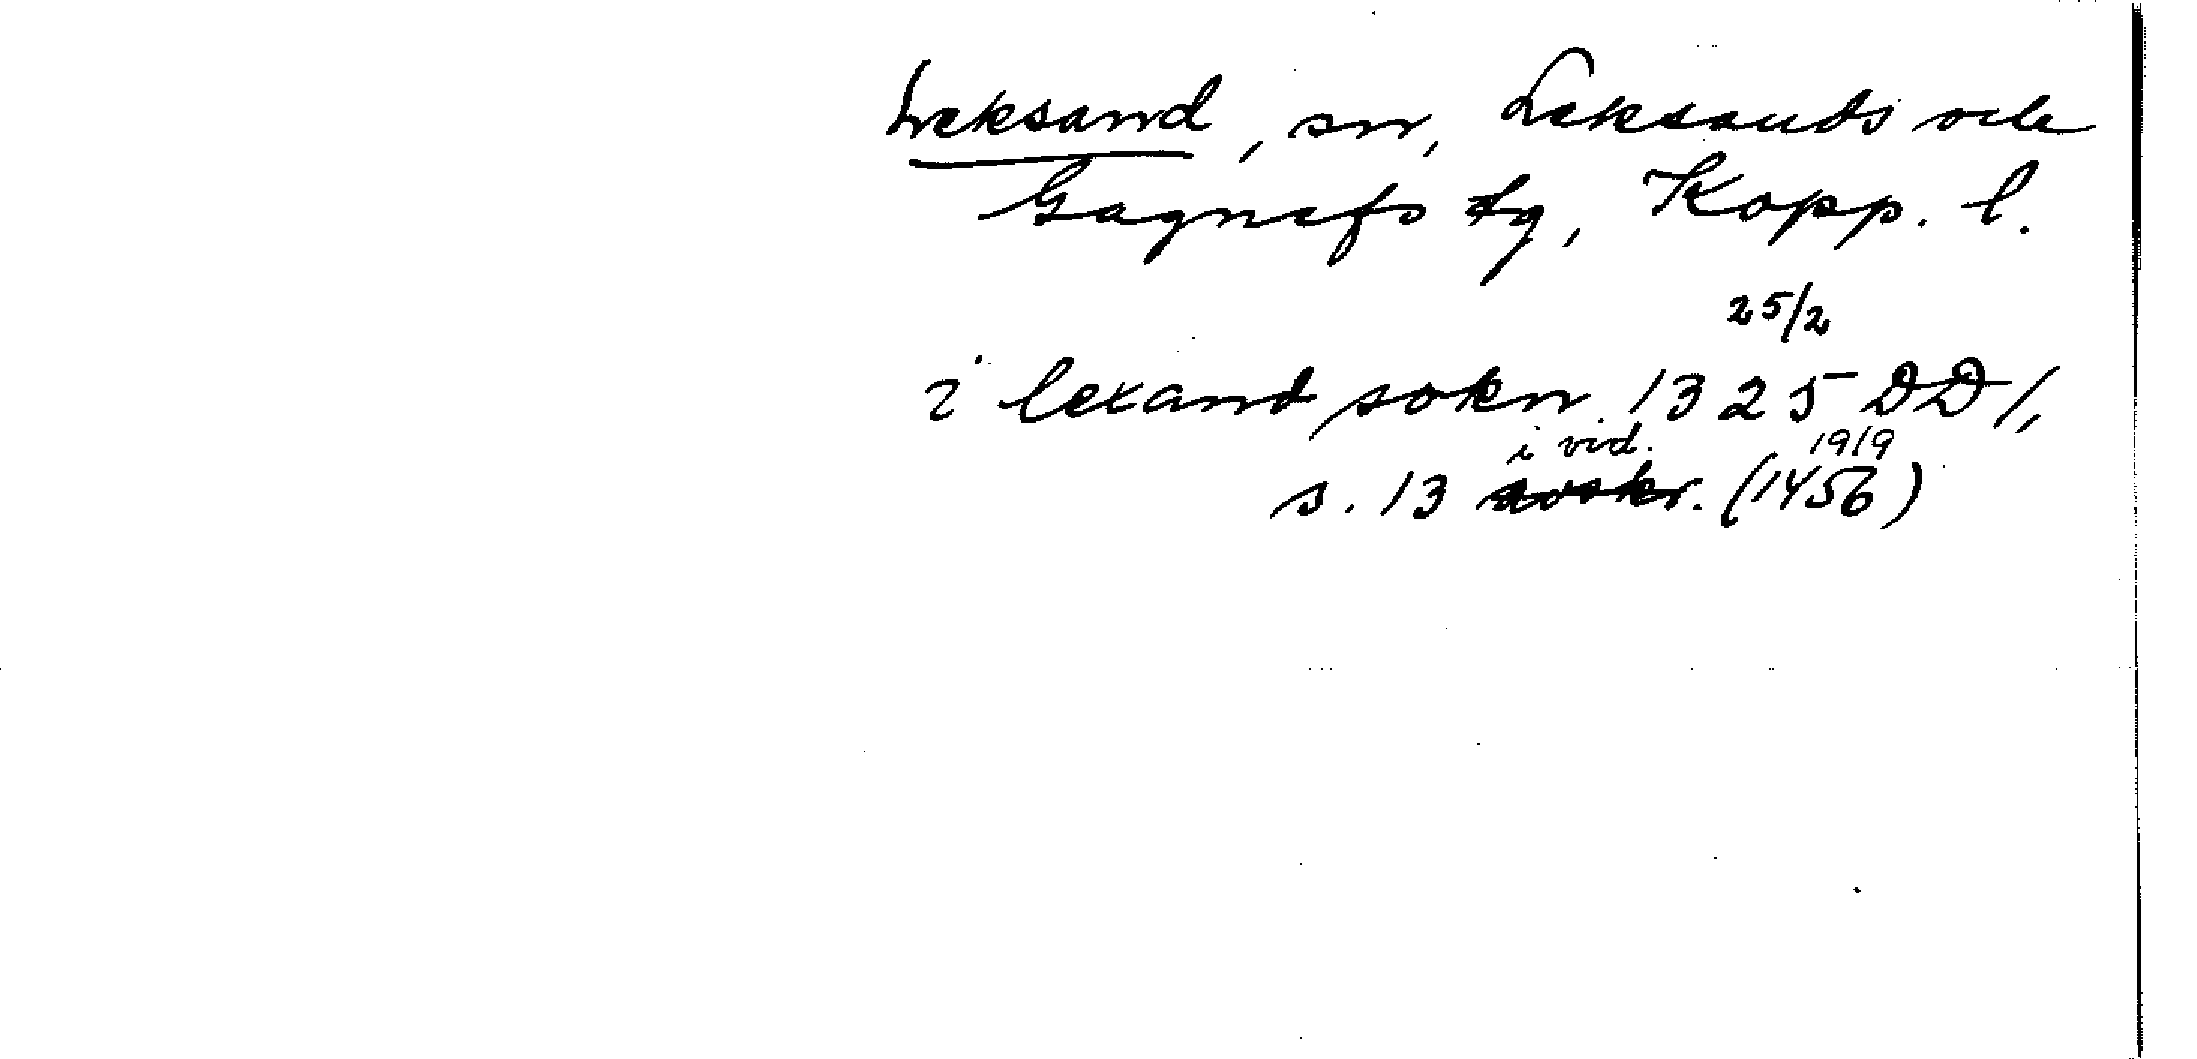 Leksand, sn, Leksands och
Gagnefs tg, Kopp. l.
25/2
i lexand sokn 1325 DD 1,
i vid. 1919
s. 13 avskr. (1456)